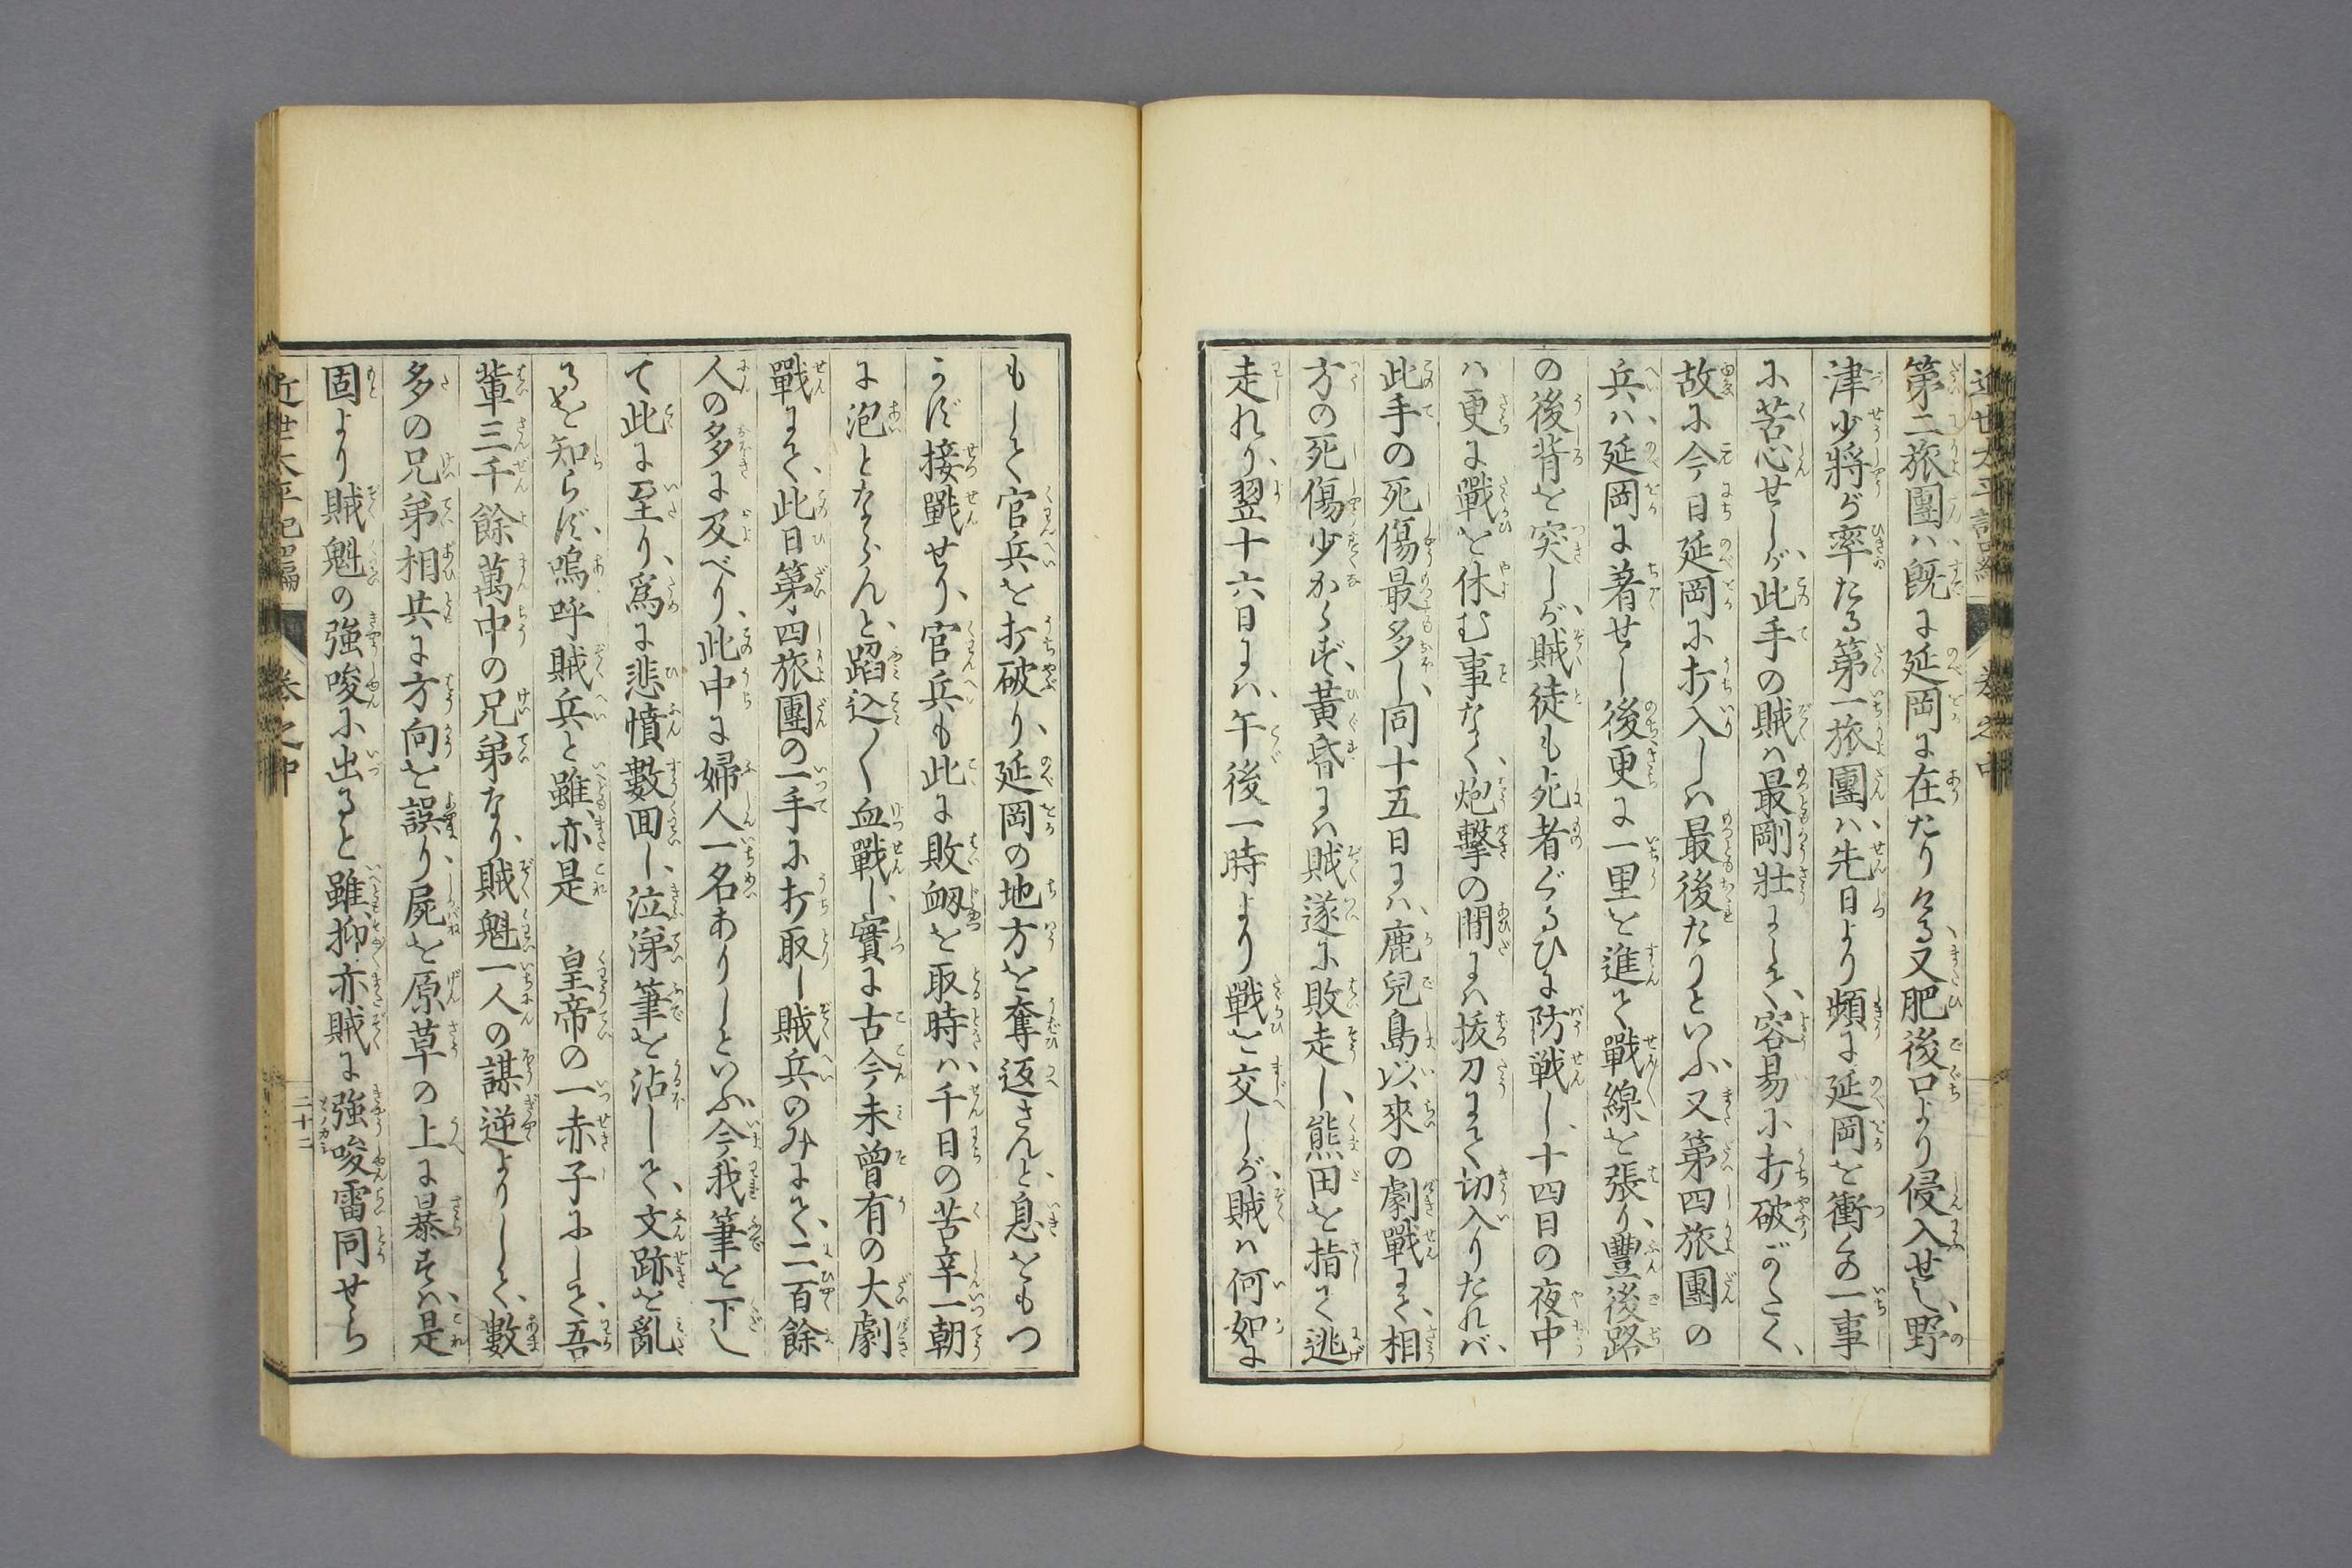 第二旅團ハ既に延岡に在たりける又肥後口より侵入せし、野
津少將が率たる第一旅團ハ、先日より頻に延岡を衝くの一事
に苦心せしが、此手の賊ハ最剛壮にして、容易に打破がたく、
故に今日延岡に打入しハ最後たりといふ、又第四旅團の
兵ハ、延岡に着せし後更に一里を進て戰線を張り、豐後路
の後背を突しが、賊徒も死者ぐるひに防戦し、十四日の夜中
ハ更に戰を休む事なく、炮撃の間にハ抜刀にて切入りたれバ、
此手の死傷最多し、同十五日にハ、鹿兒島以来の劇戰にて、相
方の死傷少からず、黄昏にハ賊遂に敗走し、熊田を指て逃
走れり、翌十六日にハ、午後一時より戰を交しが、賊ハ何如に
もして官兵を打破り、延岡の地方を奪返さんと、息をもつ
かず接戰せり、官兵も此に敗衂を取時ハ、千日の苦辛一朝
に泡とならんと、蹈込〱血戰し、實に古今未曽有の大劇
戰にて、此日第四旅團の一手に打取し賊兵のみにて、二百餘
人の多に及べり、此中に婦人一名ありしといふ今我筆を下し
て此に至り、爲に悲憤數回し、泣涕筆を沾して、文跡を亂
るを知らず、嗚呼賊兵と雖亦是　皇帝の一赤子にして、吾
輩三千餘萬中の兄弟なり、賊魁一人の謀逆よりして、數
多の兄弟相共に方向を誤り、屍を原草の上に暴すハ、是
固より賊魁の強唆に出ると雖、抑亦賊に強唆雷同せら
近世太平記二編　卷之中　二十二